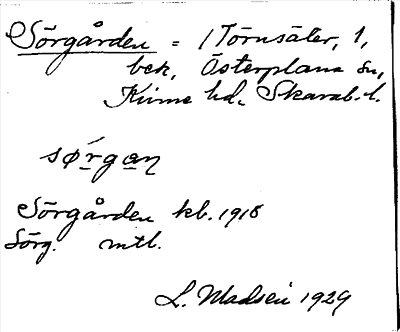 Sörgården = 1 Törnsäter, 1,
bek, Österplana sn,
Kinne hd. Skarab. l.
sørgan
Sörgården kb. 1918
Sörg. mtl.
L. Madsen 1929